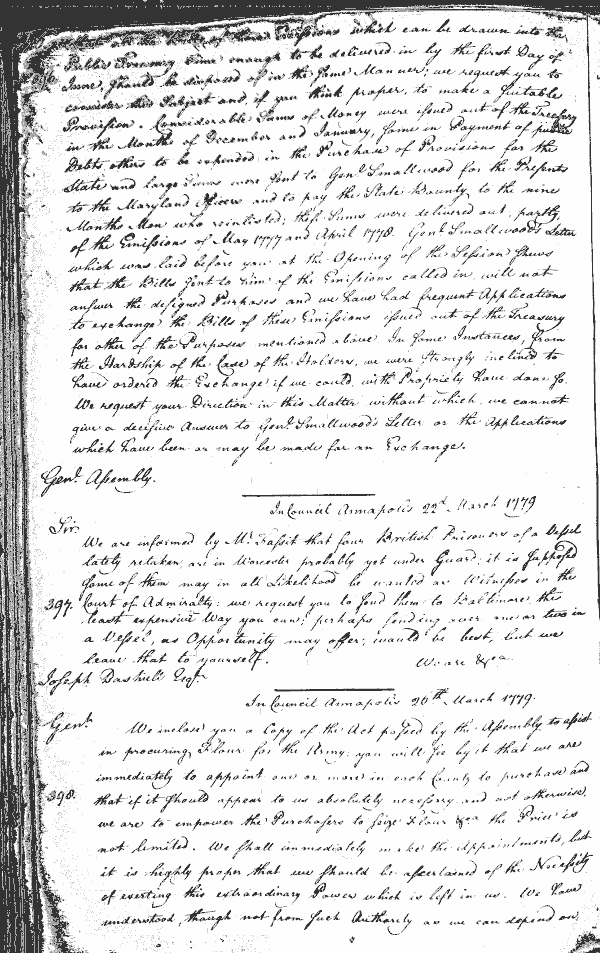 all the Bills of those Emissions which can be drawn into the
Public Treasury Time enough to be delivered in by the first Day of
June, should be disposed of in the same Manner; we request you to
consider this Subject and, if you think proper, to make a suitable
Provision. Considerable Sums of Money were issued out of the Treasury
in the Months of December and January, some in Payment of public
Debts others to be expended in the Purchase of Provisions for the
State and large Sums were sent to Genl. Smallwood for the Presents
to the Maryland Officers and to pay the State Bounty to the nine
Months Men who reinlisted; these Sums were delivered out, partly
of the Emissions of May 1777 and April 1778. Genl. Smallwood's Letter
which was laid before you at the Opening of the Session shews
that the Bills sent to him of the Emissions called in, will not
answer the designed Purposes and we have had frequent Applications
to exchange the Bills of these Emissions issued out of the Treasury
for other of the Purposes mentioned above. In some Instances, from
the Hardship of the Case of the Holders, we were strongly inclined to
have ordered the Exchange if we could, with Propriety have done so.
We request your Direction in this Matter without which, we cannot
give a decisive Answer to Genl. Smallwood's Letter or the Applications
which have been or may be made for an Exchange.
Genl. Assembly.
In Council Annapolis 22d. March 1779
Sir.
We are informed by Mr. Fassit that four British Prisoners of a Vessel
lately retaken are in Worcester probably yet under Guard; it is supposed
some of them may in all Likelihood be wanted as Witnesses in the
397. Court of Admiralty: we request you to send them to Baltimore the
least expensive Way you can; perhaps sending over one or two in
a Vessel, as Opportunity may offer, would be best, but we
leave that to yourself.
We are &ca.
Joseph Dashiell Esqr.
In Council Annapolis 26th March 1779.
Gent.
We inclose you a Copy of the Act passed by the Assembly to assist
in procuring Flour for the Army; you will see by it that we are
immediately to appoint one or more in each County to purchase and
398. that if it should appear to us absolutely necessary and not otherwise
we are to empower the Purchasers to seize Flour &ca the Price is
not limited. We shall immediately make the Appointments, but
it is highly proper that we should be ascertained of the Necessity
of exerting this extraordinary Power which is left in us. We have
understood, though not from such Authority as we can depend on,